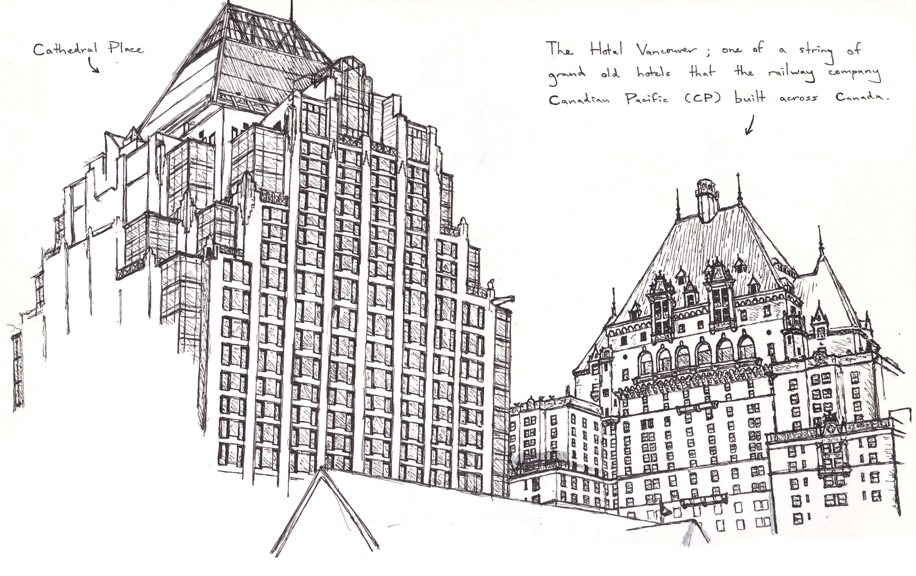 Cathedral Place
The Hotel Vancouver ; one of a string of
grand old hotels that the railway company
Canadian Pacific (CP) built across Canada.